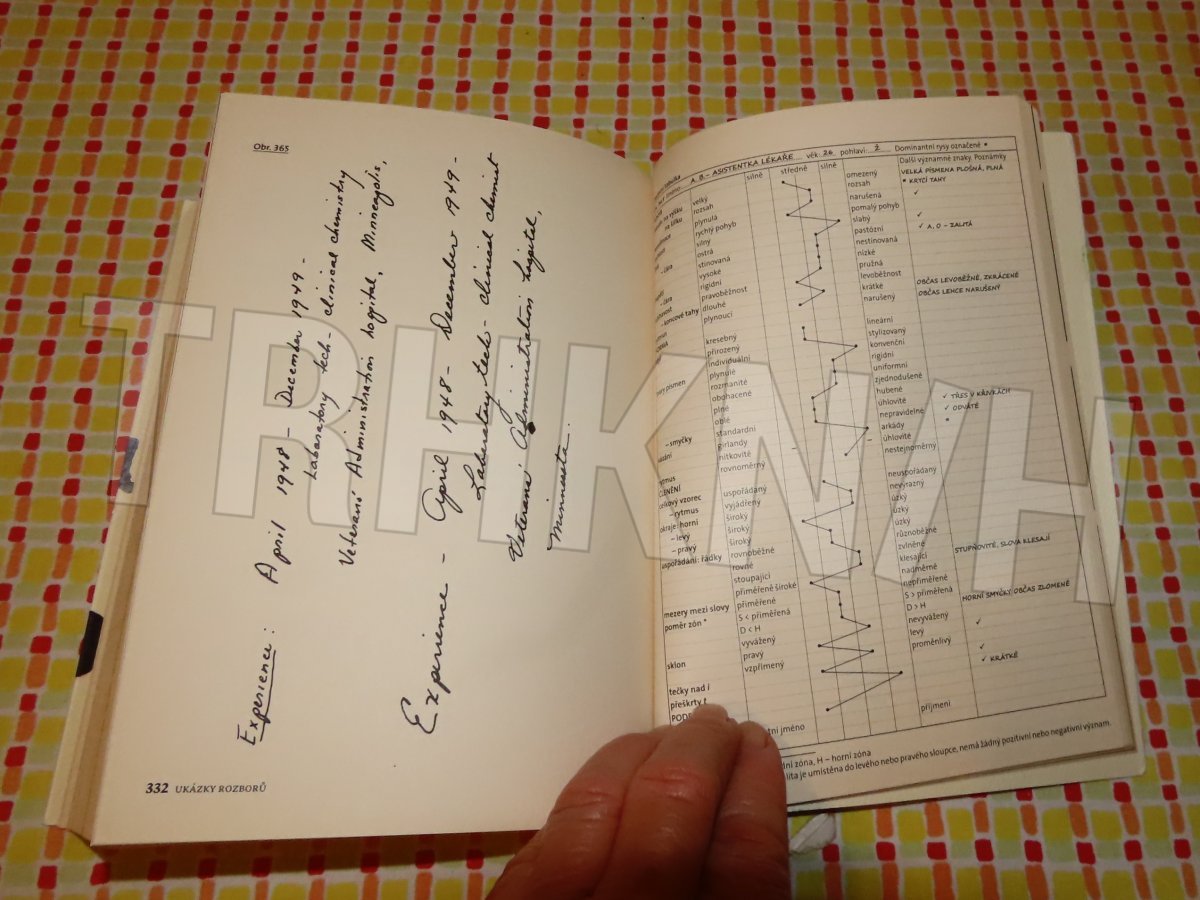 Obr. 365
Experience: April 1948 - December 1949 -
Laboratory tech - clinical chemistry
Veterans Administration hospital, Minneapolis,
Experience - April 1948 - December 1949 -
Laboratory tech - clinical chemist
Veterans Administration hospital,
Minnesota.
332 UKÁZKY ROZBORŮ
A. B. – ASISTENTKA LÉKAŘE věk: 26 pohlaví: Ž Dominantní rysy označené *
silné středně silné Další významné znaky. Poznámky
velký omezený VELKÁ PÍSMENA PLOŠNÁ, PLNÁ
rozsah rozsah * KRYCÍ TAHY
plynulá narušená ✓
rychlý pohyb pomalý pohyb
silný slabý ✓
ostrá pastózní ✓ A, O – ZALITÁ
stínovaná nestínovaná
vysoké nízké
rigidní pružná
pravoběžnost levoběžnost OBČAS LEVOBĚŽNÉ, ZKRÁCENÉ
– koncové tahy dlouhé krátké OBČAS LEHCE NARUŠENÝ
plynoucí narušený
kresebný lineární
přirozený stylizovaný
individuální konvenční
plynulé rigidní
rozmanité uniformní
obohacené zjednodušené
plné hubené
oblé úhlovité ✓ TŘES V KŘIVKÁCH
– smyčky standardní nepravidelné ✓ ODVÁTÉ
girlandy arkády *
nitkovité – úhlovité
rovnoměrný nestejnoměrný
celkový vzorec uspořádaný neuspořádaný
– rytmus vyjádřený nevýrazný
okraje: horní široký úzký
– levý široký úzký
– pravý široký úzký
uspořádání: řádky rovnoběžné různoběžné
rovné zvlněné
stoupající klesající STUPŇOVITÉ, SLOVA KLESAJÍ
přiměřeně široké nadměrné
mezery mezi slovy přiměřené nepřiměřené
poměr zón * S < přiměřená S > přiměřená HORNÍ SMYČKY OBČAS ZLOMENÉ
D < H D > H
vyvážený nevyvážený ✓
sklon pravý levý
vzpřímený proměnlivý ✓
tečky nad i ✓ KRÁTKÉ
přeškrty t
jméno příjmení
zóna, H – horní zóna
je umístěna do levého nebo pravého sloupce, nemá žádný pozitivní nebo negativní význam.
TRHKNIH